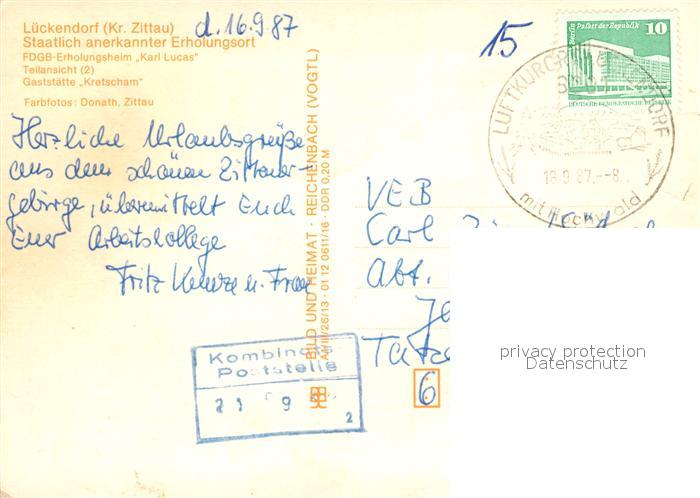 Lückendorf (Kr. Zittau)
Staatlich anerkannter Erholungsort
FDGB-Erholungsheim „Karl Lucas"
Teilansicht (2)
Gaststätte „Kretscham"
Farbfotos: Donath, Zittau
d. 16.9.87
Herzliche Urlaubsgrüße
aus dem schönen Zittauer-
gebirge, übermittelt Euch
Euer Arbeitskollege
Fritz u. Frau
BILD UND HEIMAT · REICHENBACH (VOGTL)
A1/III/26/13 · 01 12 0611/16 · DDR 0,20 M
15
Berlin Palast der Republik
10
DEUTSCHE DEMOKRATISCHE REPUBLIK
LUFTKURORT LÜCKENDORF
18.9.87.--8
mit Hochwald
VEB
Carl
Abt.
6
Kombinat
Poststelle
21 9
2
privacy protection
Datenschutz